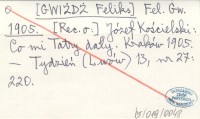 [GWIŻDŻ Feliks] Fel. Gw.
1905. [Rec. o:] Józef Kościelski:
Co mi Tatry dały. Kraków 1905.
— Tydzień (Lwów) 13, nr 27:
220.